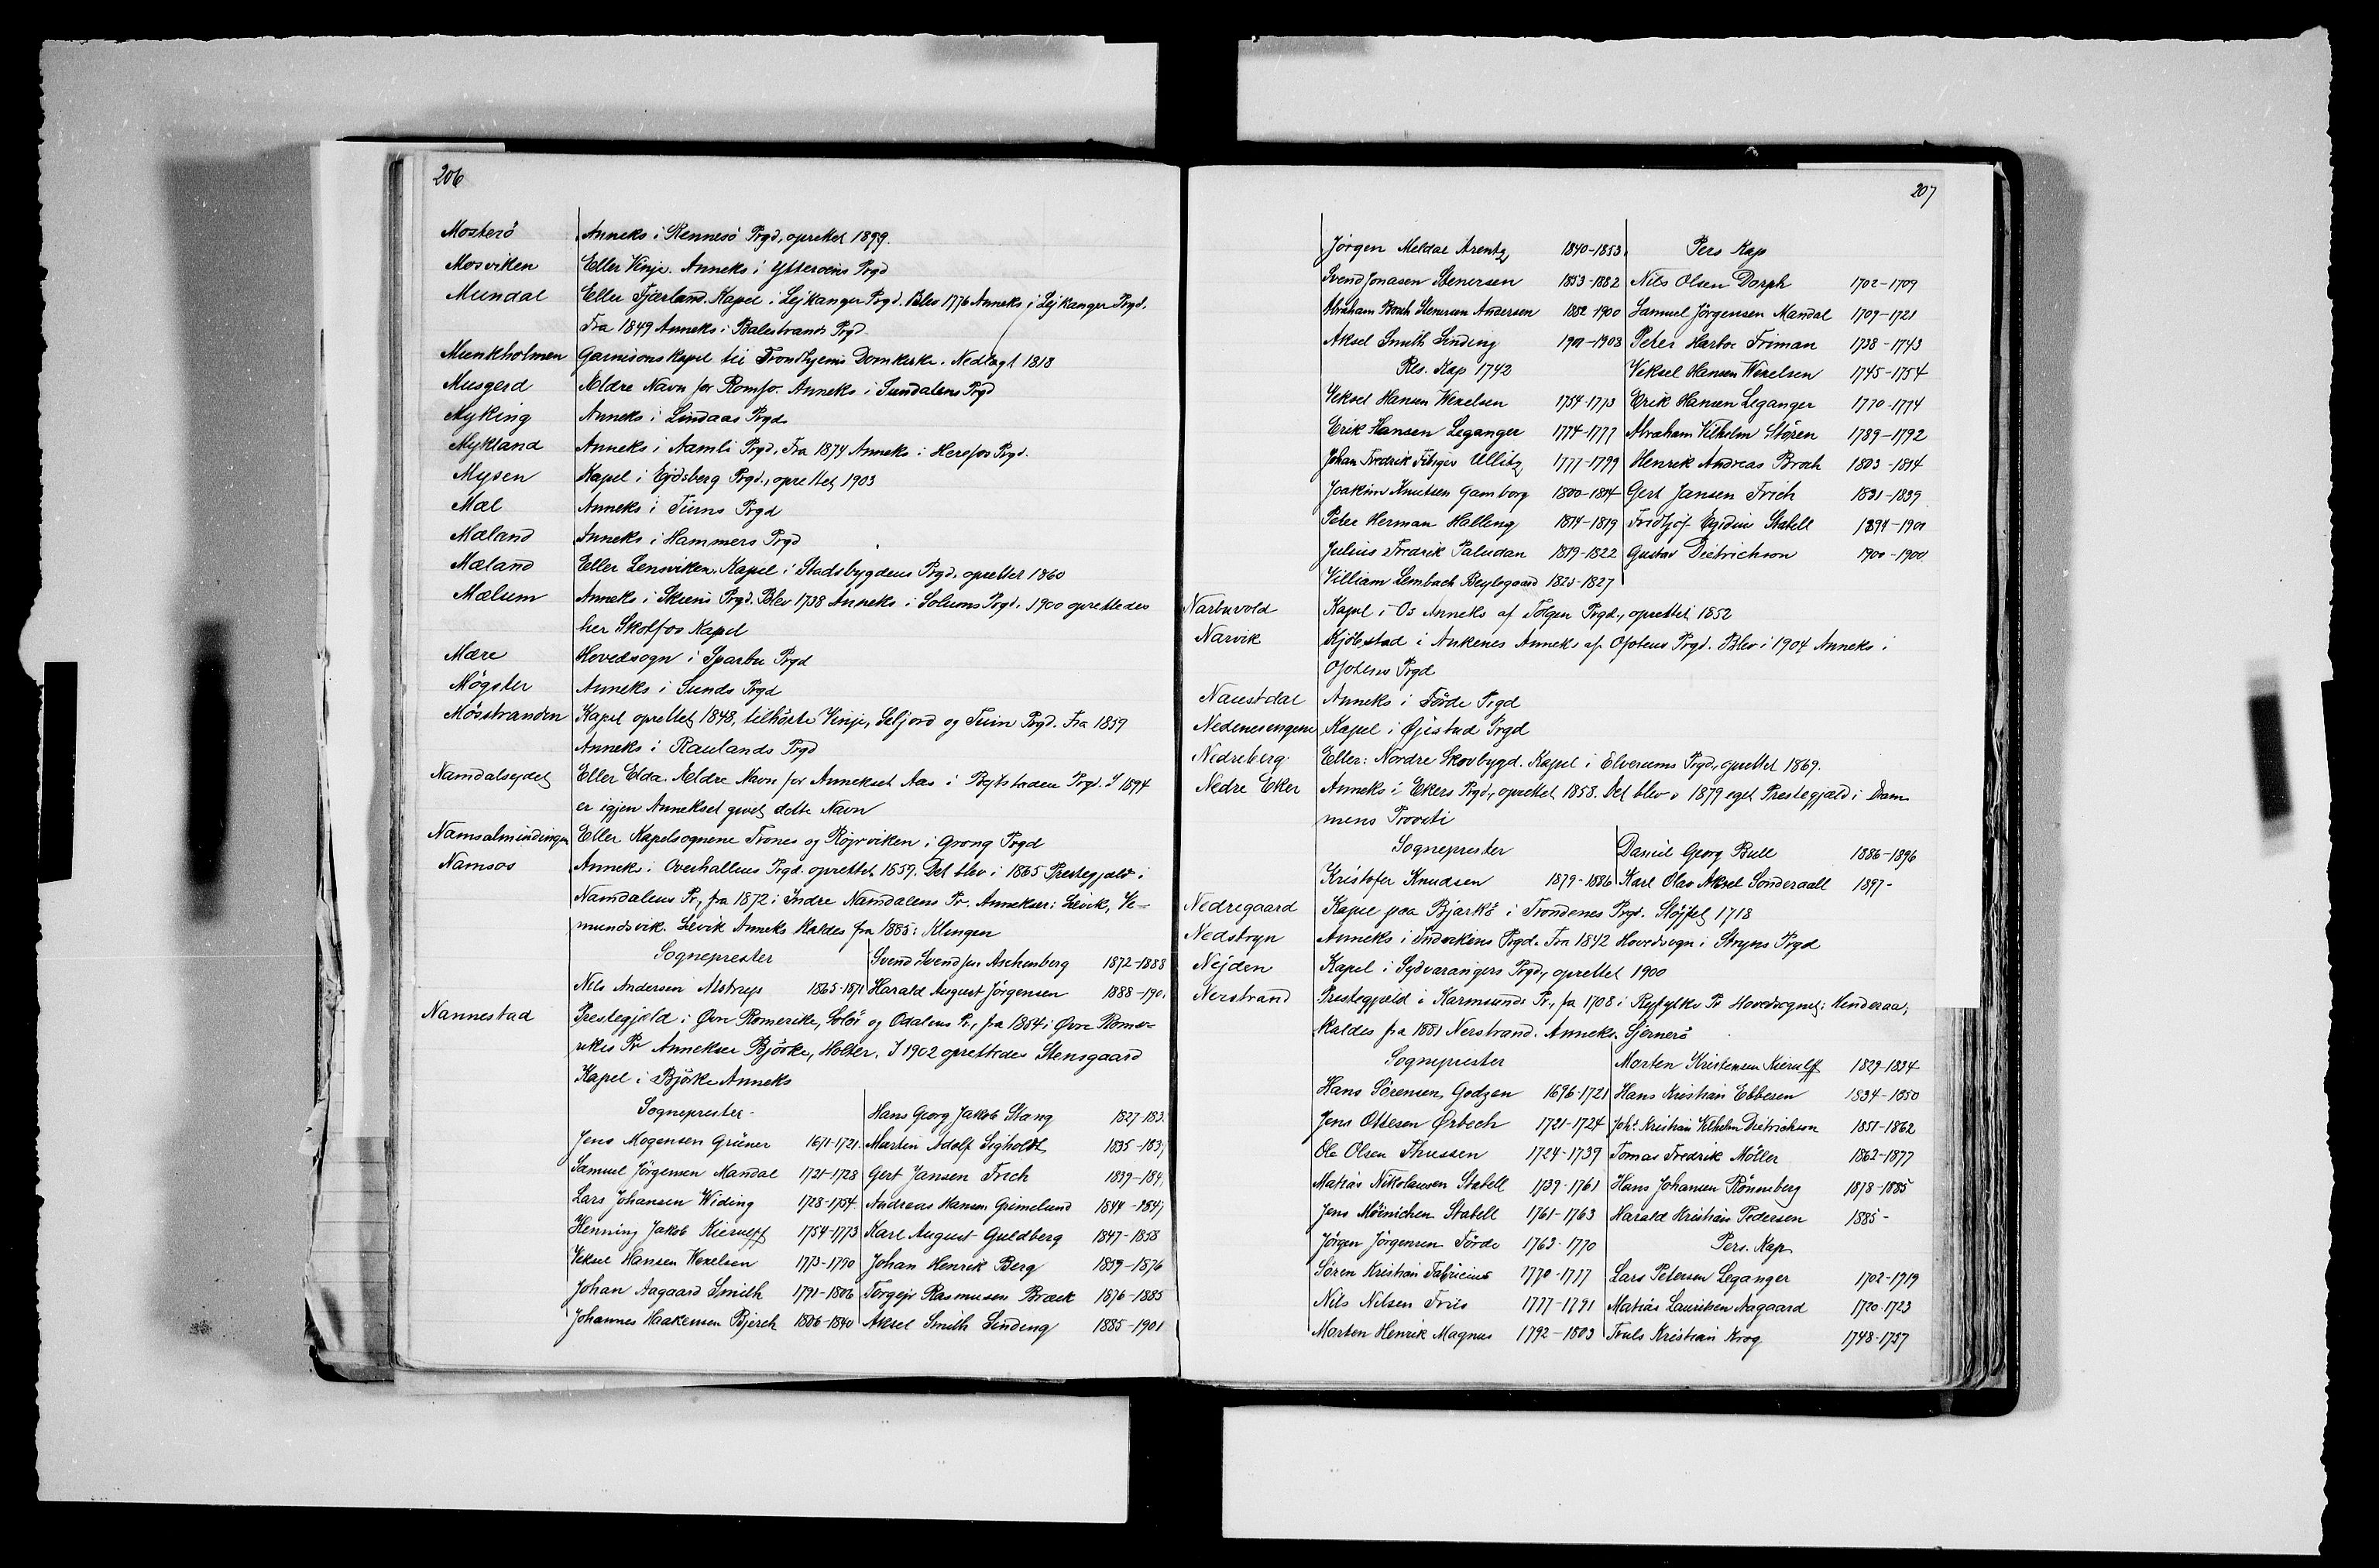 206
Mosterö Anneks i Rennesö Prgd, oprettet 1899.
Mosviken Eller Vinje. Anneks i Ytteröens Prgd
Mundal Eller Fjærland. Kapel i Lejkanger Prgd. Blev 1776 Anneks i Lejkanger Prgd.
Fra 1849 Anneks i Balestrands Prgd.
Munkholmen Garnisonskapel til Trondhjems Domkirke. Nedlagt 1818
Musgerd Ældre Navn for Romfo. Anneks i Sundalens Prgd
Myking Anneks i Lindaas Prgd.
Mykland Anneks i Aamli Prgd. Fra 1874 Anneks i Herefos Prgd.
Mysen Kapel i Ejdsberg Prgd., oprettet 1903
Mæl Anneks i Tinns Prgd
Mæland Anneks i Hammers Prgd
Mæland Eller Lensviken. Kapel i Stadsbygdens Prgd. oprettet 1860
Mælum Anneks i Skiens Prgd. Blev 1738 Anneks i Solums Prgd. 1900 oprettedes
her Skotfos Kapel
Mære Hovedsogn i Sparbu Prgd
Mögster Anneks i Sunds Prgd
Mösstranden Kapel oprettet 1848, tilhörte Vinje, Seljord og Tinn Prgd. Fra 1859
Anneks i Raulands Prgd
Namdalsejdet Eller Elda. Ældre Navn for Annekset Aas i Bejtstaden Prgd. I 1894
er igjen Annekset givet dette Navn
Namsalmindingen Eller Kapelsognene Trones og Röjrviken i Grong Prgd
Namsos Anneks i Overhallens Prgd. oprettet 1859. Det blev i 1865 Prestegjæld i
Namdalens Pr., fra 1872 i Indre Namdalens Pr. Annekser: Sævik, Ve-
mundsvik. Sævik Anneks kaldes fra 1885: Klingen
Sogneprester Svend Svendsen Aschenberg 1872-1888
Nils Andersen Alstrup 1865-1871 Harald August Jörgensen 1888-190
Nannestad Prestegjæld i Øvre Romerike, Solör og Odalens Pr., fra 1854 i Øvre Rome-
rikes Pr Annekser Björke, Holter. I 1902 oprettedes Stensgaard
Kapel i Björke Anneks
Sogneprester. Hans Georg Jakob Stang 1827-183
Jens Mogensen Grüner 1671-1721. Martin Adolf Sigholdt 1835-183
Samuel Jörgensen Mandal 1721-1728 Gert Jansen Frich 1839-184
Lars Johansen Widing 1728-1754 Andreas Hansen Grimelund 1844-184
Henning Jakob Kierulff 1754-1773 Karl August Guldberg 1847-1858
Veksel Hansen Wexelsen 1773-1790 Johan Henrik Berg 1859-1876
Johan Aagaard Smith 1791-1806 Torgejr Rasmusen Bræck 1876-1885
Johannes Haakensen Bjerch 1806-1840 Aksel Smith Sinding 1885-1901
207
Jörgen Meldal Arentz 1840-1853. Pers Kap
Svend Jonasen Stenersen 1853-1882 Nils Olsen Dorph 1702-1709
Abraham Borch Stenersen Andersen 1882-1900 Samuel Jörgensen Mandal 1709-1721
Aksel Smith Sinding 1901-1908 Peter Harboe Friman 1738-1743
Res. Kap 1742 Veksel Hansen Wexelsen 1745-1754
Veksel Hansen Wexelsen 1754-1773 Erik Hansen Leganger 1770-1774
Erik Hansen Leganger 1774-1777 Abraham Vilhelm Stören 1789-1792
Johan Fredrik Fibiger Ullitz 1777-1799 Henrik Andreas Broch 1803-1814
Joakim Knutsen Gamborg 1800-1814 Gert Jansen Frich 1831-1839
Peter Herman Halling 1814-1819 Fridtjof Egidius Stabell 1894-1900
Julius Fredrik Paludan 1819-1822 Gustav Dietrichson 1900-1900
Villiam Lembach Beylegaard 1823-1827
Narbuvold Kapel i Os Anneks af Tolgen Prgd., oprettet 1852
Narvik Kjöbstad i Ankenes Anneks af Ofotens Prgd. Blev i 1904 Anneks i
Ofotens Prgd
Naustdal Anneks i Förde Prgd
Nedenesengene Kapel i Øjestad Prgd
Nedreberg Eller: Nordre Skovbygd. Kapel i Elverums Prgd, oprettet 1869.
Nedre Eker Anneks i Ekers Prgd, oprettet 1858. Det blev i 1879 eget Prestegjæld i Dram
mens Provsti
Sogneprester Daniel Georg Bull 1886-1896
Kristofer Knudsen 1879-1886 Karl Olav Aksel Sonderaall 1897-
Nedregaard Kapel paa Bjarkö i Trondenes Prgd. Slöjfet 1718
Nedstryn Anneks i Indvikens Prgd. Fra 1842 Hovedsogn i Stryns Prgd
Nejden Kapel i Sydvarangers Prgd, oprettet 1900
Nerstrand Prestegjæld i Karmsunds Pr., fra 1708 i Ryfylke Pr Hovedsognet: Hinderaa,
kaldes fra 1881 Nerstrand. Anneks. Sjernerö
Sogneprester Morten Kristensen Kierulff 1829-1834
Hans Sörensen Godzen 1696-1721 Hans Kristian Ebbesen 1834-1850
Jens Ottesen Ørbech 1721-1724 Johs. Kristian Vilhelm Dietrichson 1851-1862
Ole Olsen Thuesen 1724-1739 Tomas Fredrik Möller 1862-1877
Matias Nikolausen Stabell 1739-1761 Hans Johansen Rönneberg 1878-1885
Jens Möinichen Stabell 1761-1763 Harald Kristian Pedersen 1885-
Jörgen Jörgensen Förde 1763-1770 Pers. Kap
Sören Kristian Fabricius 1770-1777 Lars Petersen Leganger 1702-1719
Nils Nilsen Friis 1777-1791 Matias Lauritsen Aagaard 1720-1723
Morten Henrik Magnus 1792-1803 Truls Kristian Krog 1748-1757